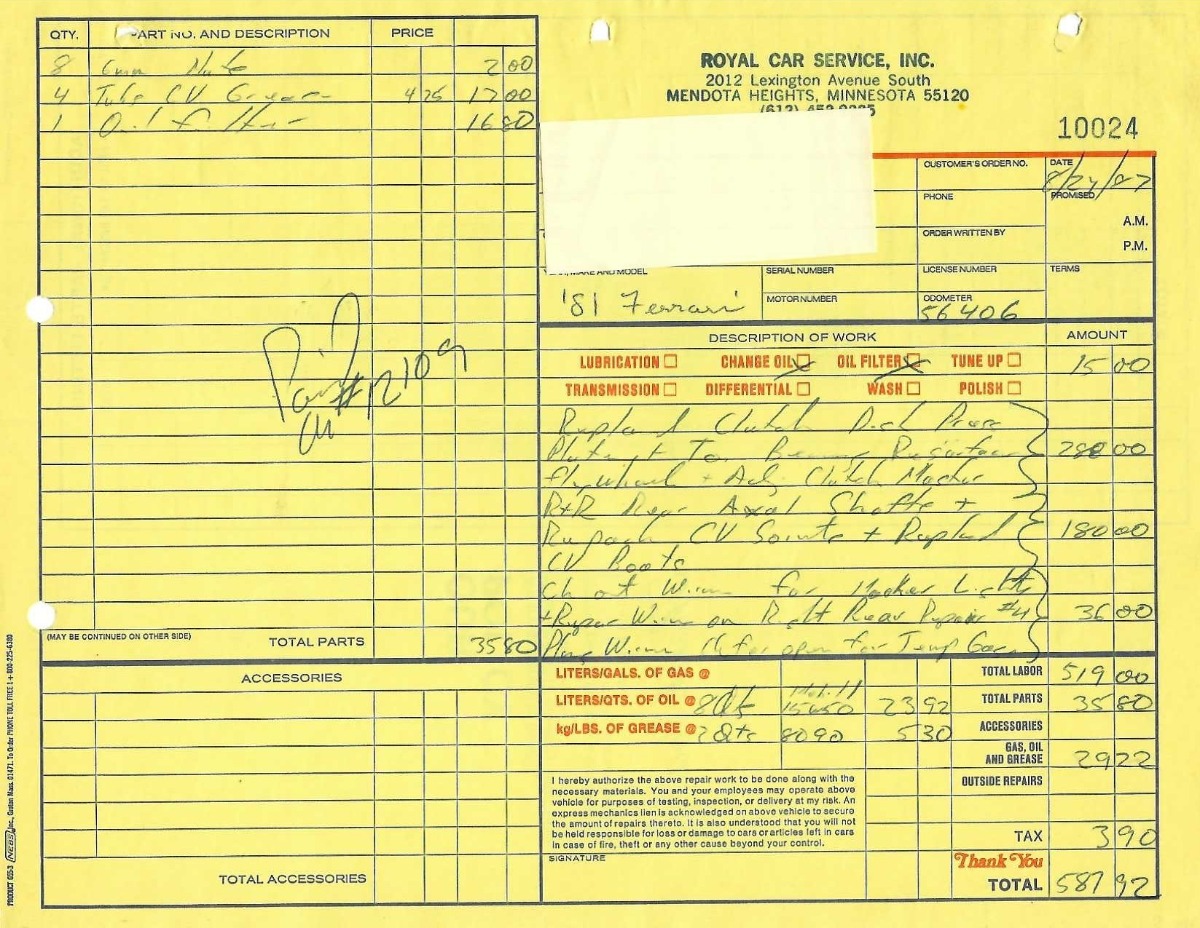 QTY. PART NO. AND DESCRIPTION PRICE
8 6mm Nuts 2 00
4 Tube CV Grease 4 25 17 00
1 Oil filter 16 80
Paid
#12109
(MAY BE CONTINUED ON OTHER SIDE) TOTAL PARTS 35 80
ACCESSORIES
TOTAL ACCESSORIES
PRODUCT 655-3 NEBS Inc., Groton, Mass. 01471. To Order PHONE TOLL FREE 1 + 800-225-6380
ROYAL CAR SERVICE, INC.
2012 Lexington Avenue South
MENDOTA HEIGHTS, MINNESOTA 55120
10024
CUSTOMER'S ORDER NO. DATE
PHONE PROMISED
A.M.
ORDER WRITTEN BY P.M.
YEAR, MAKE AND MODEL SERIAL NUMBER LICENSE NUMBER TERMS
'81 Ferrari MOTOR NUMBER ODOMETER 56406
DESCRIPTION OF WORK AMOUNT
LUBRICATION CHANGE OIL OIL FILTER TUNE UP 15 00
TRANSMISSION DIFFERENTIAL WASH POLISH
Clutch Disc
288 00
Flywheel + Adj Clutch Master
R+R Rear Axel Shafts +
CV Joints + 180 00
CV Boots
for Marker Lights
on Right Rear Repair #4 36 00
for open for Temp
LITERS/GALS. OF GAS @ TOTAL LABOR 519 00
LITERS/QTS. OF OIL @ 8 Qts 23 92 TOTAL PARTS 35 80
kg/LBS. OF GREASE @ 2 Qts 8090 5 30 ACCESSORIES
GAS, OIL AND GREASE 29 22
OUTSIDE REPAIRS
I hereby authorize the above repair work to be done along with the
necessary materials. You and your employees may operate above
vehicle for purposes of testing, inspection, or delivery at my risk. An
express mechanics lien is acknowledged on above vehicle to secure
the amount of repairs thereto. It is also understood that you will not
be held responsible for loss or damage to cars or articles left in cars
in case of fire, theft or any other cause beyond your control.
TAX 3 90
SIGNATURE Thank You
TOTAL 587 92